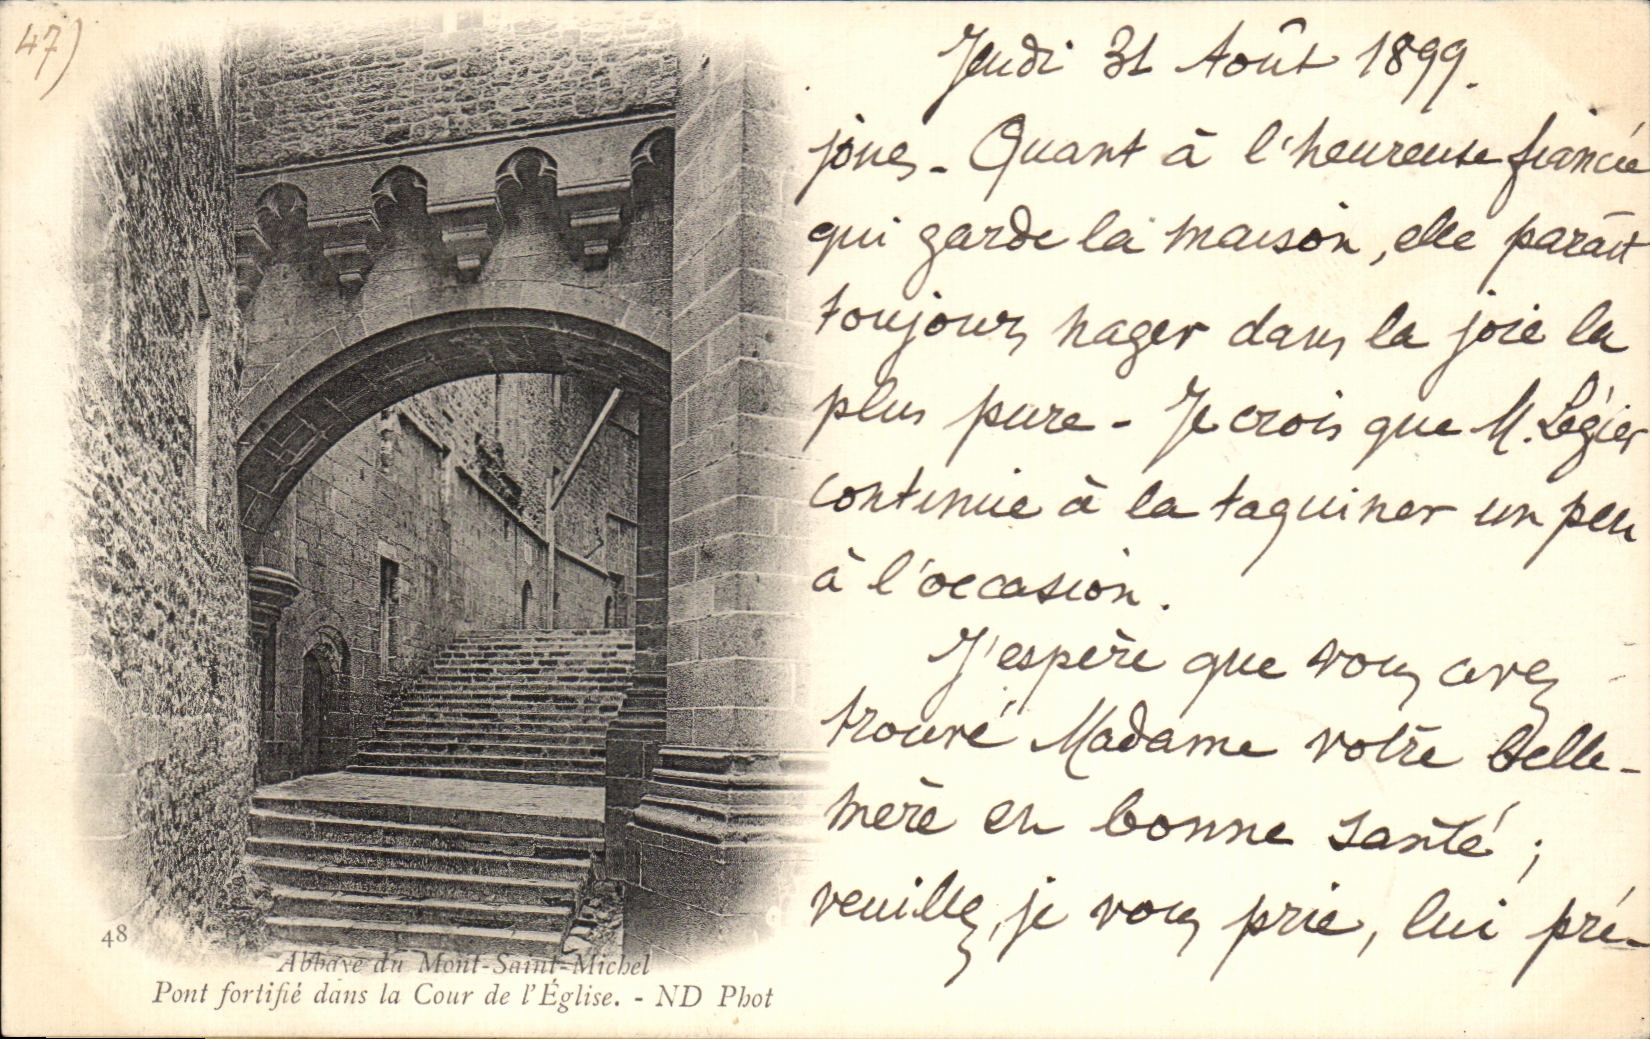 47)
Jeudi 31 Août 1899.
joues - Quant à l'heureuse fiancée
qui garde la maison, elle paraît
toujours nager dans la joie la
plus pure - Je crois que M. Légier
continue à la taquiner un peu
à l'occasion.
J'espère que vous avez
trouvé Madame votre belle-
mère en bonne santé ;
veuillez, je vous prie, lui pré-
48
Abbaye du Mont-Saint-Michel
Pont fortifié dans la Cour de l'Église. - ND Phot